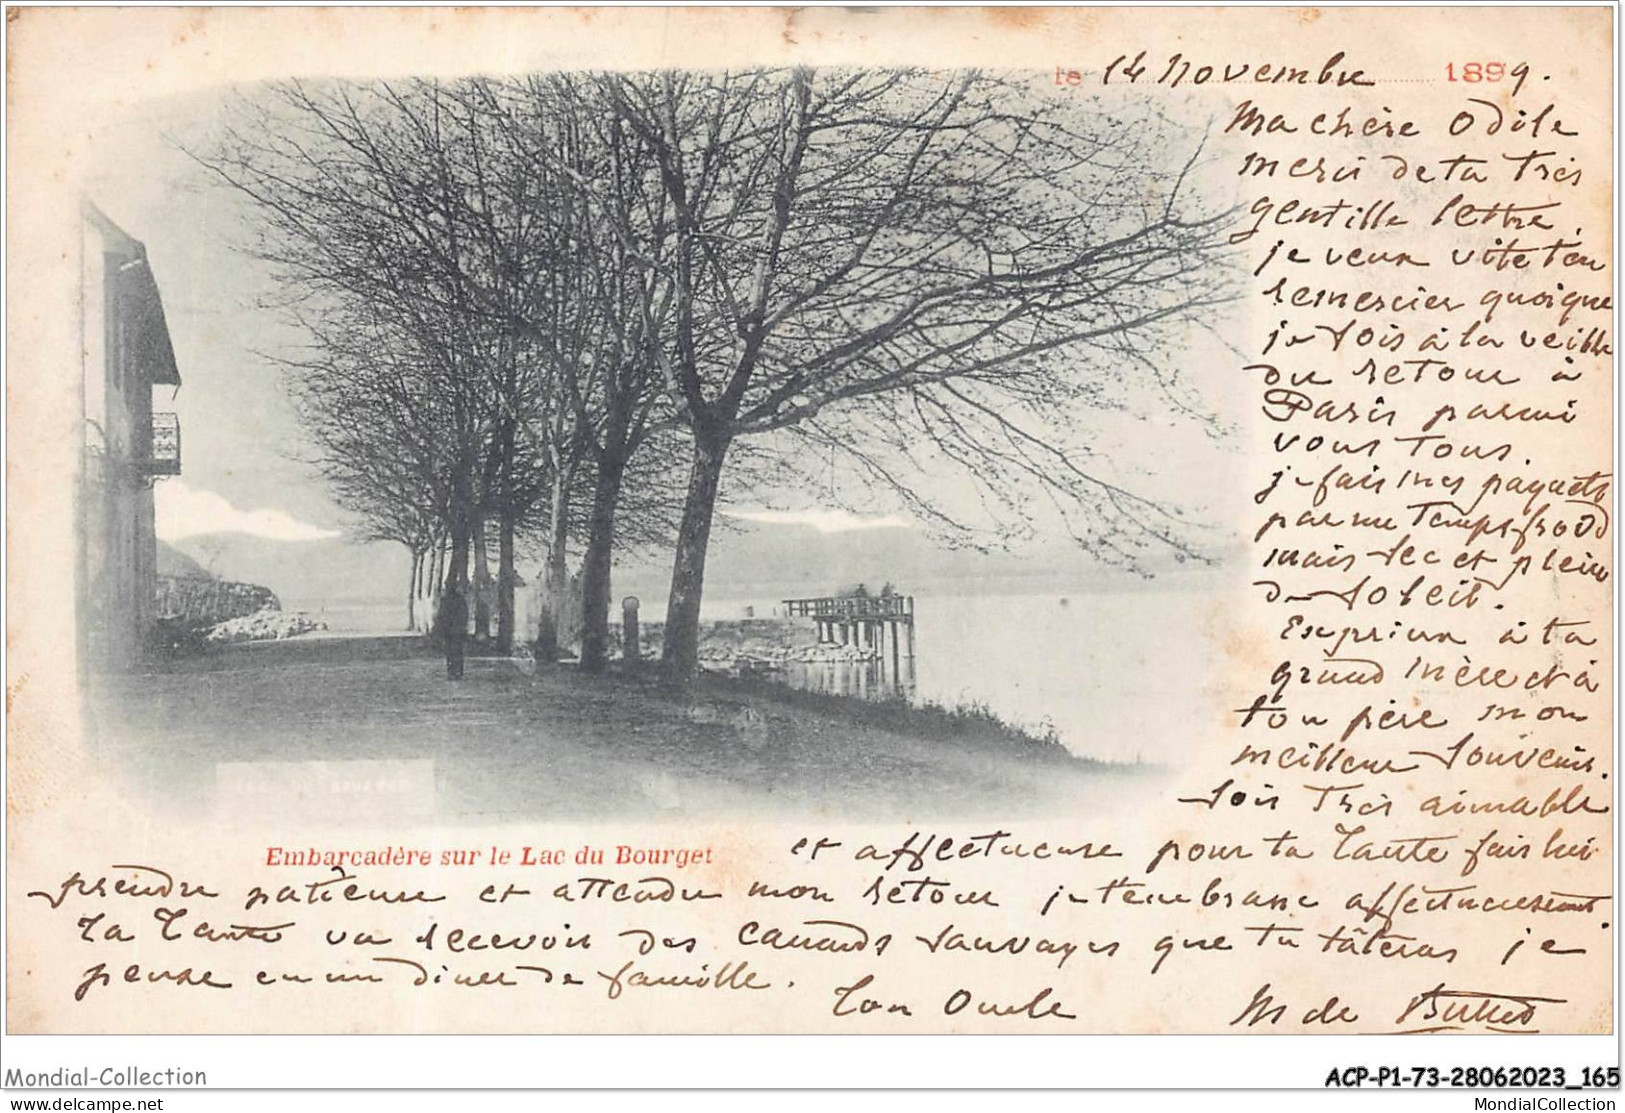 le 14 novembre 1899.
Ma chère Odile
merci de ta très
gentille lettre,
je veux vite t'en
remercier quoique
je sois à la veille
du retour à
Paris parmi
vous tous.
je fais mes paquets
par un temps froid
mais sec et plein
de soleil.
Exprime à ta
grand mère et à
ton père mon
meilleur souvenir.
Sois très aimable
Embarcadère sur le Lac du Bourget
et affectueuse pour ta Tante fais lui
prendre patience et attendre mon retour je t'embrasse affectueusement.
Ta Tante va recevoir des canards sauvages que tu tâteras je
pense en un diner de famille.
Ton Oncle M de
Mondial-Collection
ACP-P1-73-28062023_165
www.delcampe.net
MondialCollection